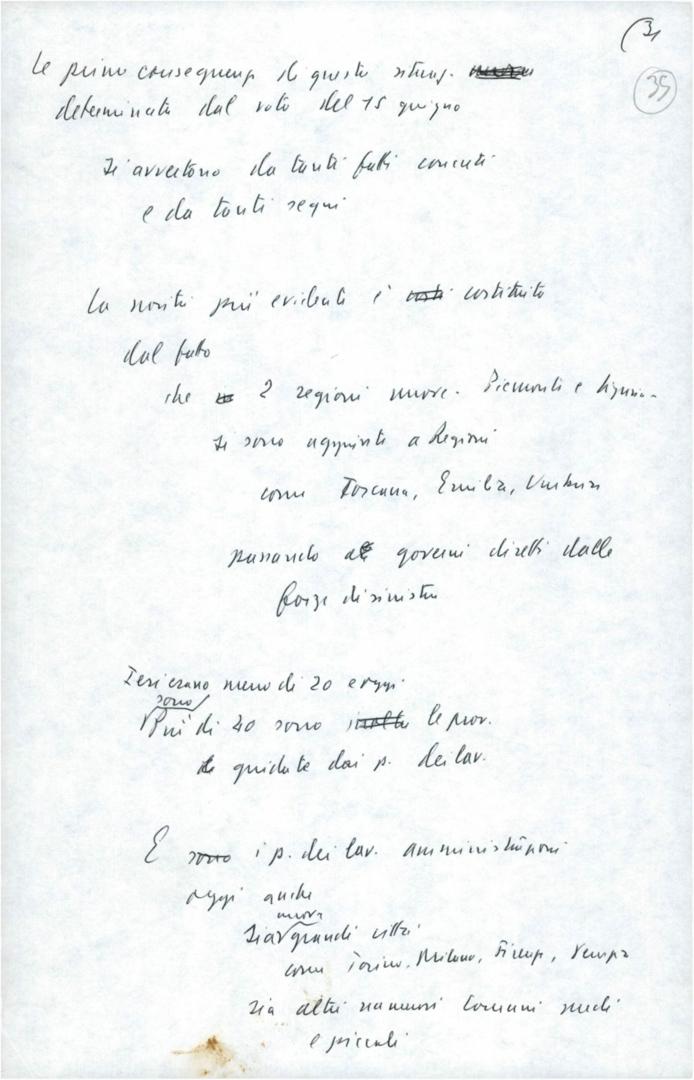 (3,
35
Le prime conseguenze di questa situaz.
determinata dal voto del 15 giugno
si avvertono da tanti fatti concreti
e da tanti segni
La novità più evidente è costituita
dal fatto
che 2 regioni nuove. Piemonte e Liguria.
si sono aggiunte a Regioni
come Toscana, Emilia, Umbria
passando a governi diretti dalle
forze di sinistra
Ieri erano meno di 20 e oggi
sono
Più di 40 sono le prov.
guidate dai p. dei lav.
E i p. dei lav. amministrano
oggi anche
nuove
sia grandi città
come Torino, Milano, Firenze, Venezia
sia altri numerosi Comuni medi
e piccoli